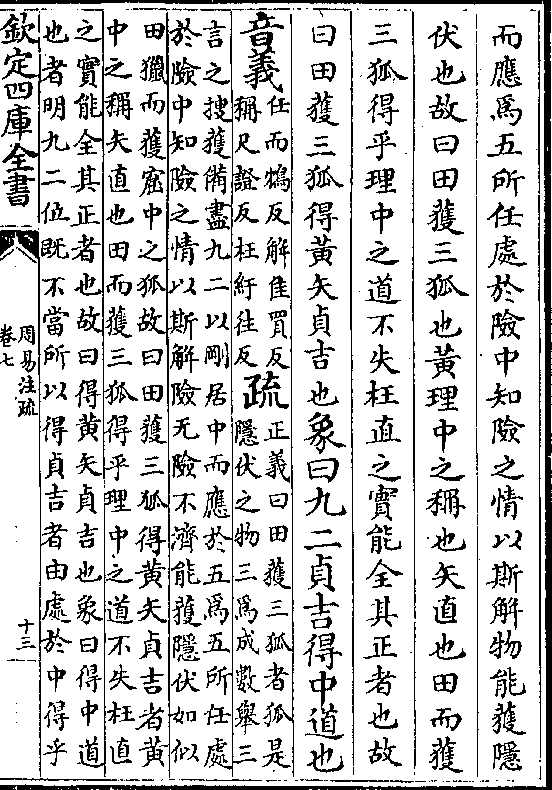 而應爲五所任處於險中知險之情以斯解物能獲隱
伏也故曰田獲三狐也黃理中之稱也矢直也田而獲
三狐得乎理中之道不失枉直之實能全其正者也故
曰田獲三狐得黃矢貞吉也象曰九二貞吉得中道也
音義
任而鴆反解佳買反
稱尺證反枉紆往反
疏
正義曰田獲三狐者狐是
隱伏之物三爲成數舉三
言之搜獲備盡九二以剛居中而應於五爲五所任處
於險中知險之情以斯解險无險不濟能獲隱伏如似
田獵而獲窟中之狐故曰田獲三狐得黃矢貞吉者黃
中之稱矢直也田而獲三狐得乎理中之道不失枉直
之實能全其正者也故曰得黃矢貞吉也象曰得中道
也者明九二位既不當所以得貞吉者由處於中得乎
欽定四庫全書
周易注疏
卷七
十三